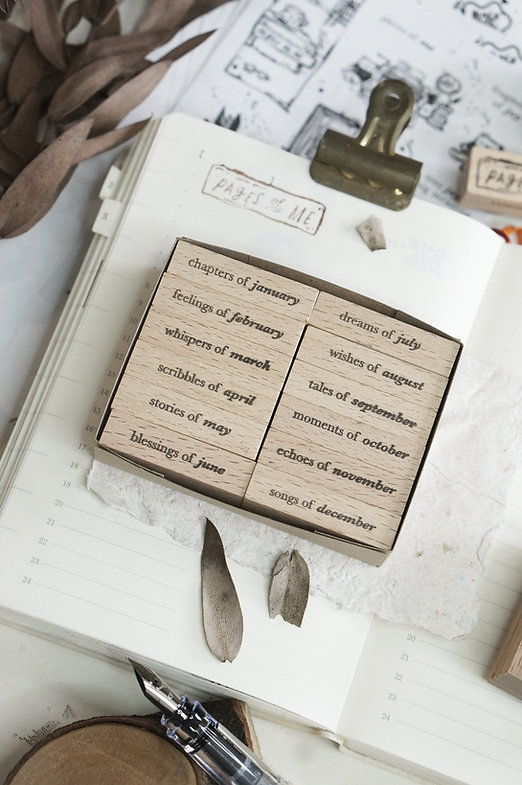 PAGES of ME
chapters of january
feelings of february
whispers of march
scribbles of april
stories of may
blessings of june
dreams of july
wishes of august
tales of september
moments of october
echoes of november
songs of december
2
3
15
16
19
20
21
22
23
24
20
21
22
23
24
PAGES